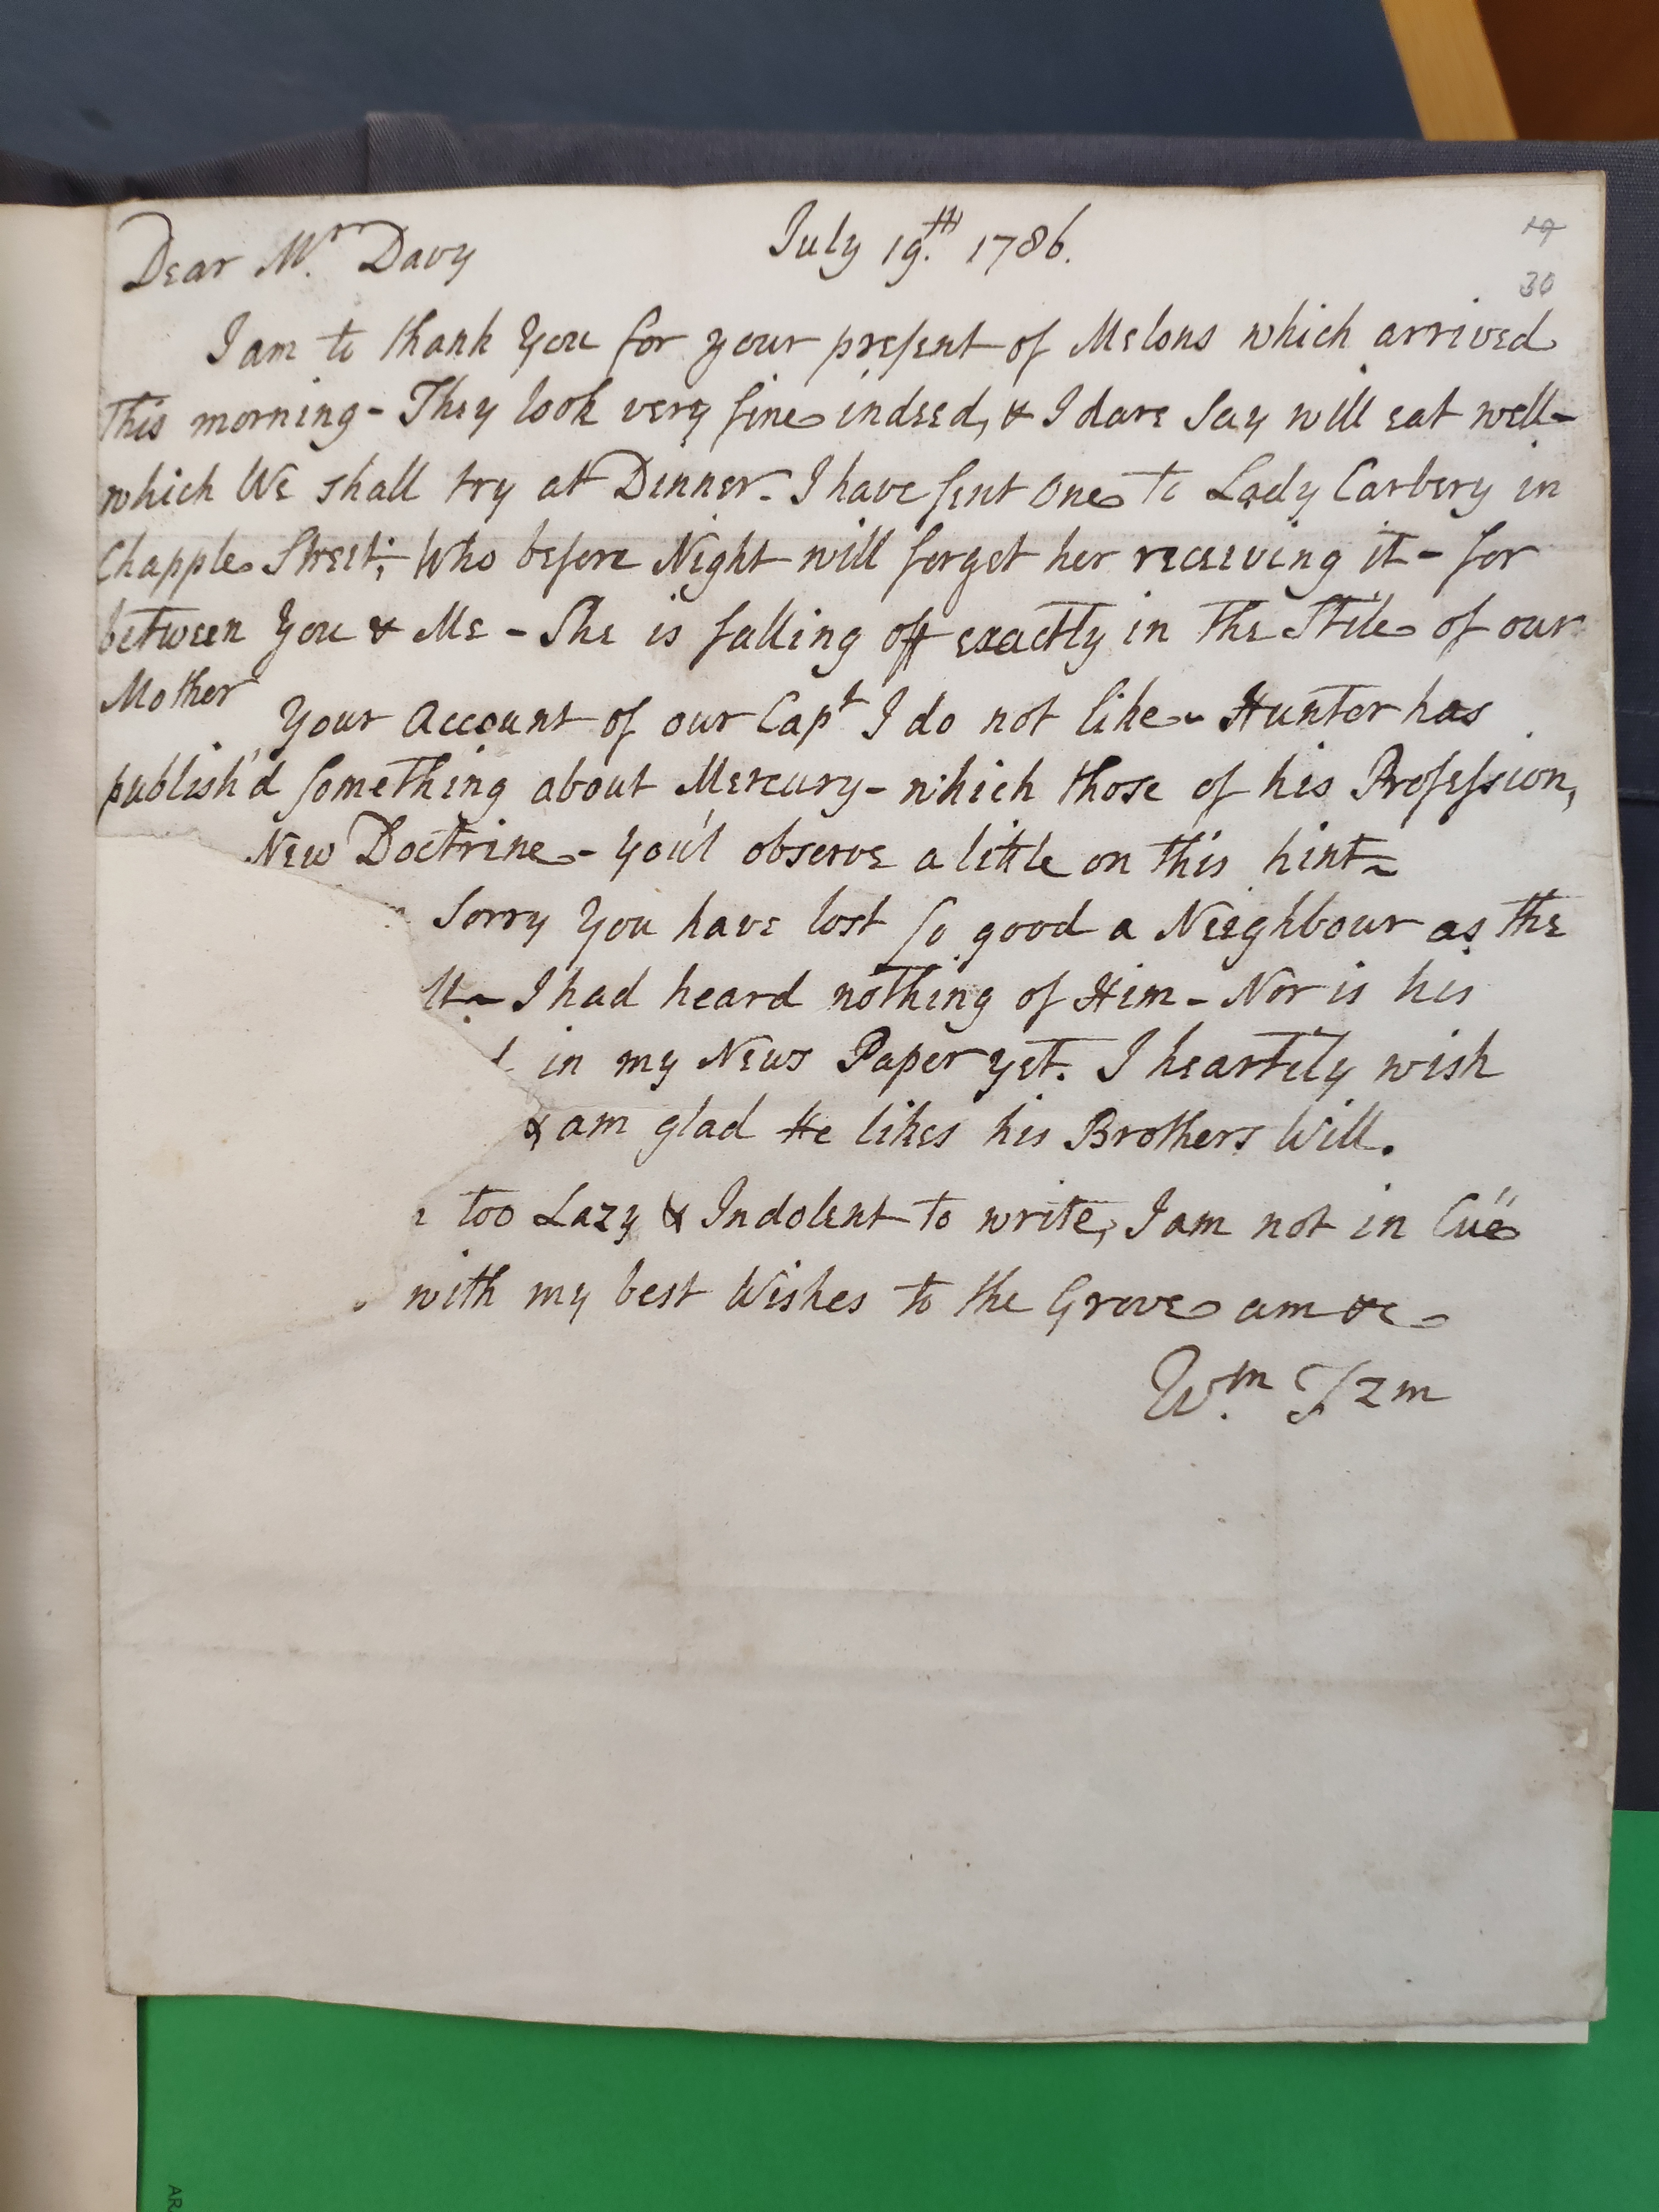 Dear Mr. Davy July 19.th 1786.
19
30
I am to thank You for your present of Melons which arrived
This morning - They look very fine indeed, & I dare Say will eat well -
which We shall try at Dinner - I have sent One to Lady Carbery in
Chapple Street; Who before Night will forget her receiving it - for
between You & Me - She is falling off exactly in The Stile of our
Mother
Your Account of our Capt I do not like - Hunter has
publish'd something about Mercury - which those of his Profession,
New Doctrine - You'l observe a little on this hint -
Sorry You have lost so good a Neighbour as the
I had heard nothing of Him - Nor is his
in my News Paper yet. I heartily wish
& am glad He likes his Brothers Will.
too Lazy & Indolent to write, I am not in Cue
with my best Wishes to the Grove am &c -
Wm. Fzm
AR